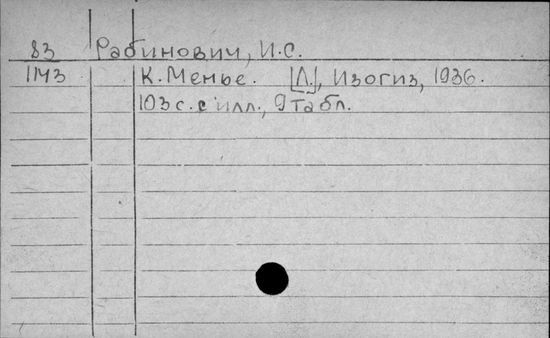 83 Рабинович, И.С.
1М3 К. Менье. [Л.], Изогиз, 1936.
103 с. с илл., 9 табл.